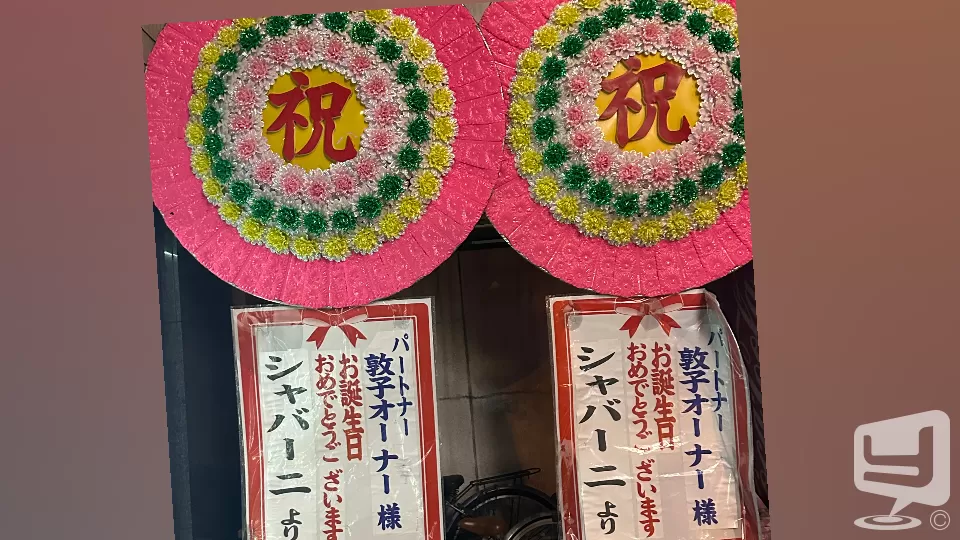 祝
祝
パートナー
敦子オーナー様
お誕生日
おめでとうございます
シャバーニより
パートナー
敦子オーナー様
お誕生日
おめでとうございます
シャバーニより